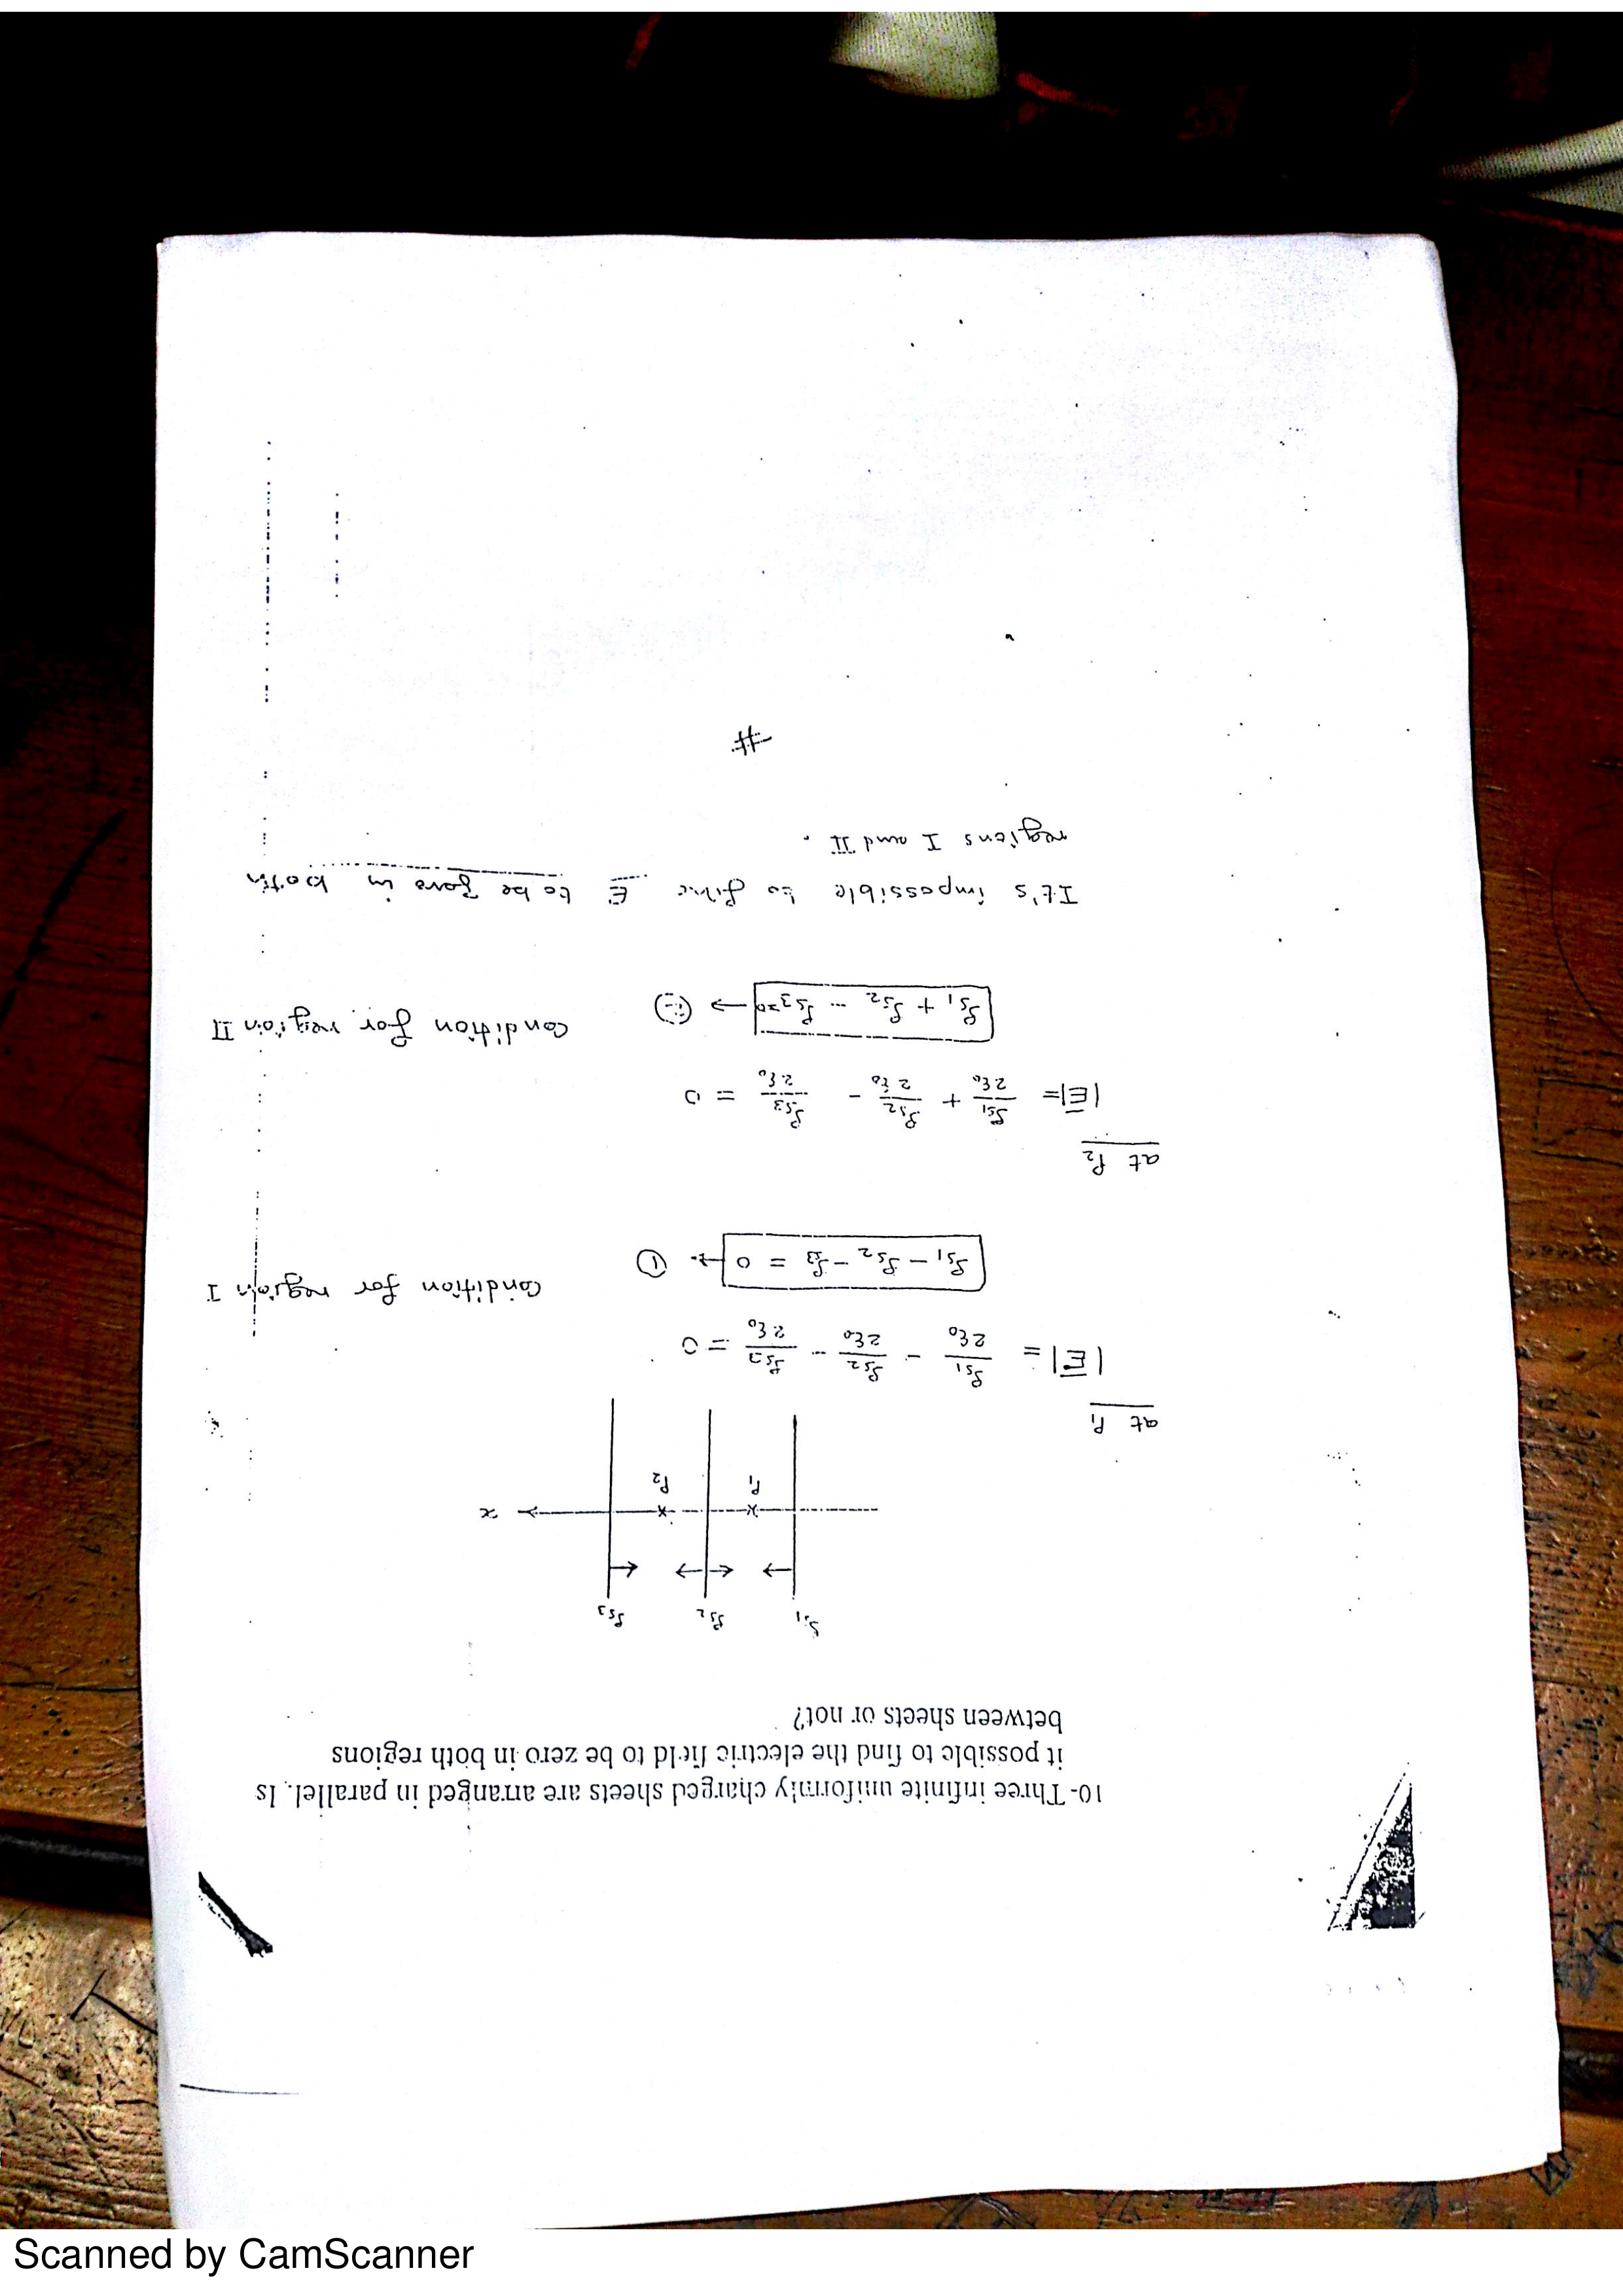 10- Three infinite uniformly charged sheets are arranged in parallel. Is
it possible to find the electric field to be zero in both regions
between sheets or not?
ρs1 ρs2 ρs3
P1 P2 x
at P1
|E| = ρs1/2ε0 - ρs2/2ε0 - ρs3/2ε0 = 0
ρs1 - ρs2 - ρs3 = 0 → ① Condition for region I
at P2
|E| = ρs1/2ε0 + ρs2/2ε0 - ρs3/2ε0 = 0
ρs1 + ρs2 - ρs3 = 0 → Condition for region II
It's impossible to E to be zero in both
regions I and II.
#
Scanned by CamScanner